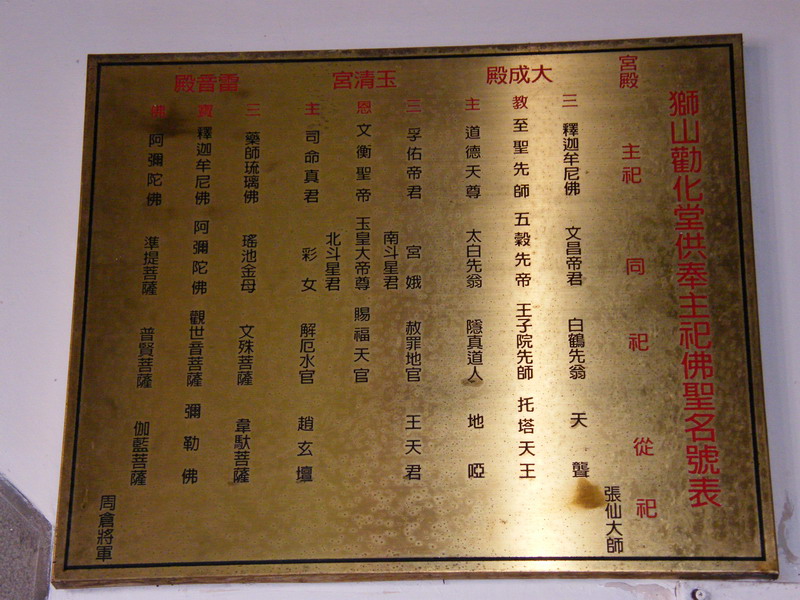 獅山勸化堂供奉主祀佛聖名號表
宮殿 主祀 同祀 從祀
張仙大師
大成殿
三 釋迦牟尼佛 文昌帝君 白鶴先翁 天聾
教 至聖先師 五穀先帝 王子院先師 托塔天王
主 道德天尊 太白先翁 隱真道人 地啞
玉清宮
三 孚佑帝君 南斗星君 宮娥 赦罪地官 王天君
恩 文衡聖帝 玉皇大帝尊 賜福天官
主 司命真君 北斗星君 彩女 解厄水官 趙玄壇
雷音殿
三 藥師琉璃佛 瑤池金母 文殊菩薩 韋馱菩薩
寶 釋迦牟尼佛 阿彌陀佛 觀世音菩薩 彌勒佛
佛 阿彌陀佛 準提菩薩 普賢菩薩 伽藍菩薩
周倉將軍